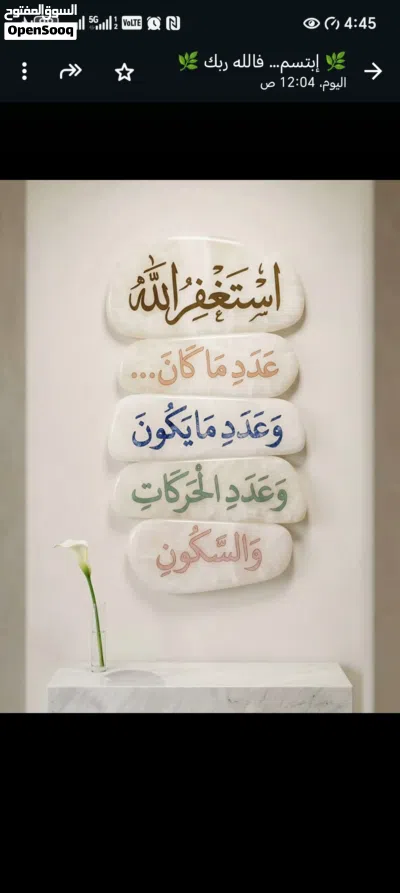 السوق المفتوح
OpenSooq
5G
VoLTE
4:45
🌿 إبتسم... فالله ربك 🌿
اليوم، 12:04 ص
اسْتَغْفِرُ اللَّهَ
عَدَدِ مَا كَانَ...
وَعَدَدِ مَا يَكُونَ
وَعَدَدِ الْحَرَكَاتِ
وَالسَّكُونِ